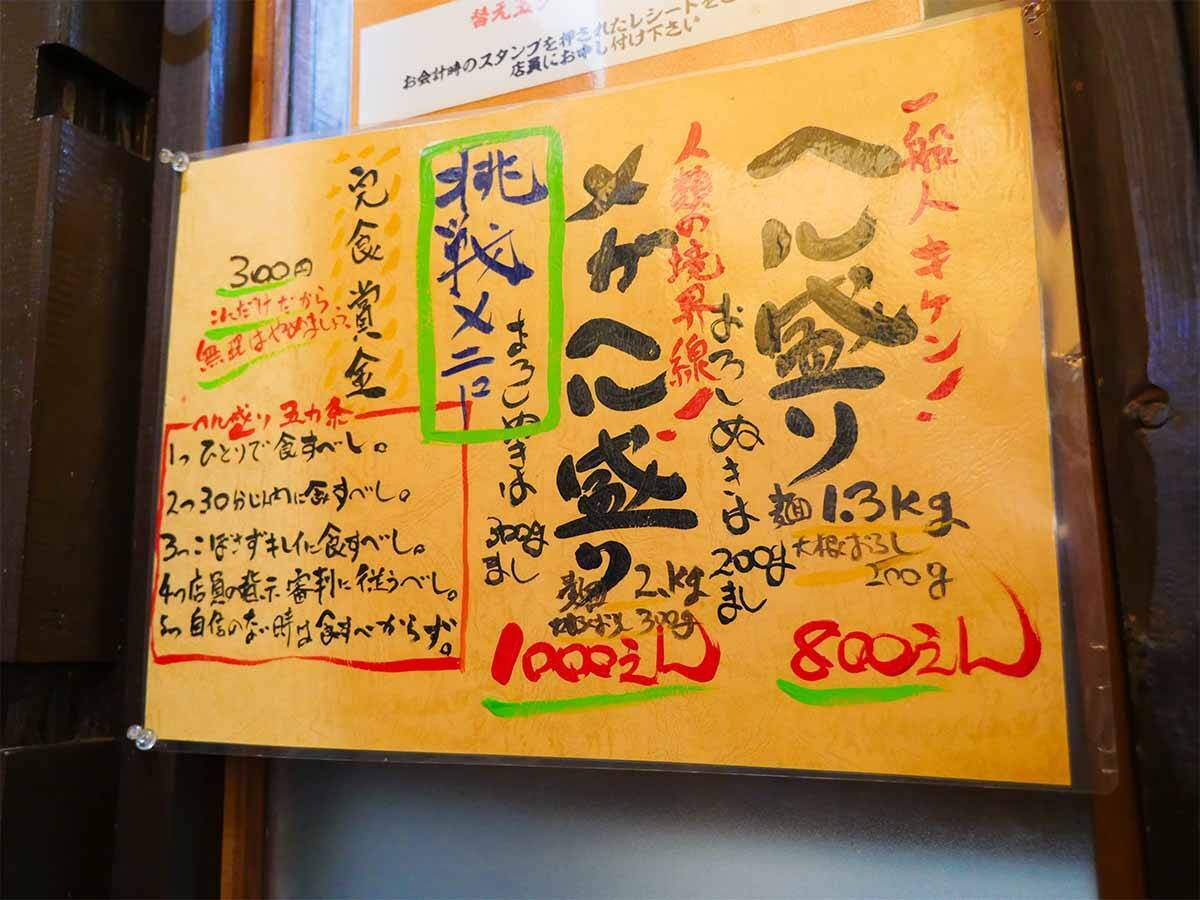 替え玉
お会計時のスタンプを押されたレシートをご
店員にお申し付け下さい
一般人キケン!
ヘル盛り
麺 1.3kg
大根おろし
200g
おろしぬきは200gまし
800えん
人類の境界線!
メガヘル盛り
麺 2.kg
大根おろし 300g
おろしぬきは300gまし
1000えん
挑戦メニュー
完食賞金
300円
これだけだから
無理はやめましょう。
ヘル盛り 五カ条
1つ ひとりで食すべし。
2つ 30分以内に食すべし。
3つ こぼさずキレイに食すべし。
4つ 店員の指示、審判に従うべし。
5つ 自信のない時は食すべからず。